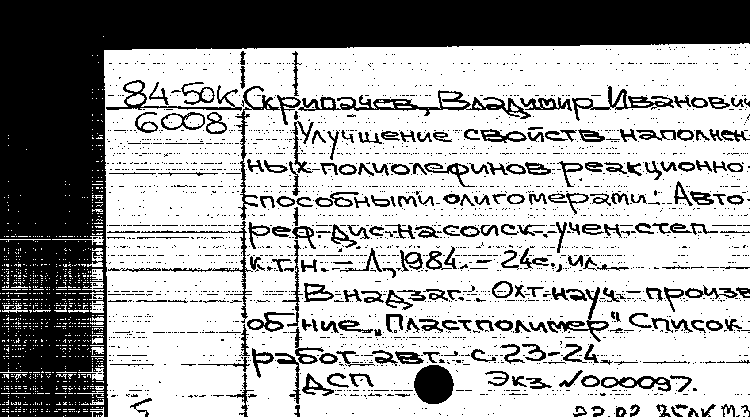 84-50К Скрипачев, Владимир Иванович
6008 Улучшение свойств наполнен-
ных полиолефинов реакционно-
способными олигомерами: Авто-
реф. дис. на соиск. учен. степ.
к.т.н. – Л., 1984. – 24с., ил.
В надзаг.: Охт. науч.-произв.
об-ние „Пластполимер". Список
работ авт.: с. 23-24.
ДСП Экз. N000097.